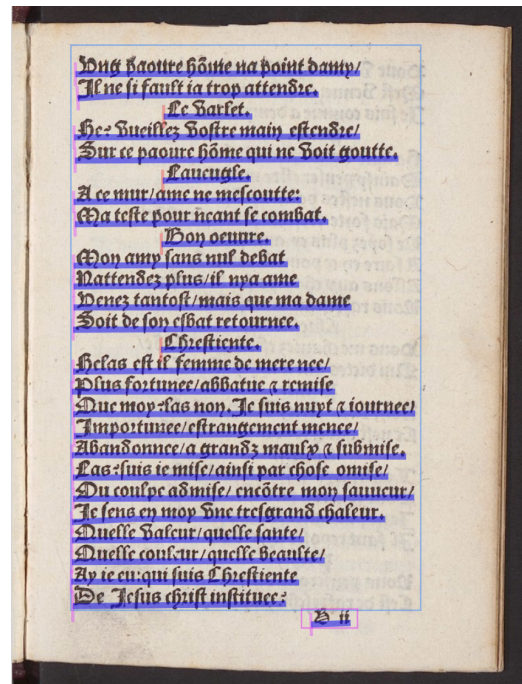 Ung paoure hōme na point damy/
Il ne si fault ia trop attendre.
Le Varlet.
He: Vueillez Vostre main estendre/
Sur ce paoure hōme qui ne Voit goutte.
Laueugle.
A ce mur/ame ne mescoutte:
Ma teste pour neant se combat.
Bon oeuure.
Mon amy sans nul debat
Nattendez plus/il nya ame
Venez tantost/mais que ma dame
Soit de son esbat retournee.
Chrestiente.
Helas est il femme de mere nee/
Plus fortunee/abbatue ⁊ remise
Que moy:las non. Je suis nuyt ⁊ iournee/
Importunee/estrangement menee/
Abandonnee/a grandz maulx ⁊ submise.
Las:suis ie mise/ainsi par chose omise/
Ou coulpe admise/ encōtre mon sauueur/
Je sens en moy Vne tresgrand chaleur.
Quelle Valeur/quelle sante/
Quelle couleur/quelle beaulte/
Ay ie eu:qui suis Chrestiente
De Jesus christ instituee:
B ii